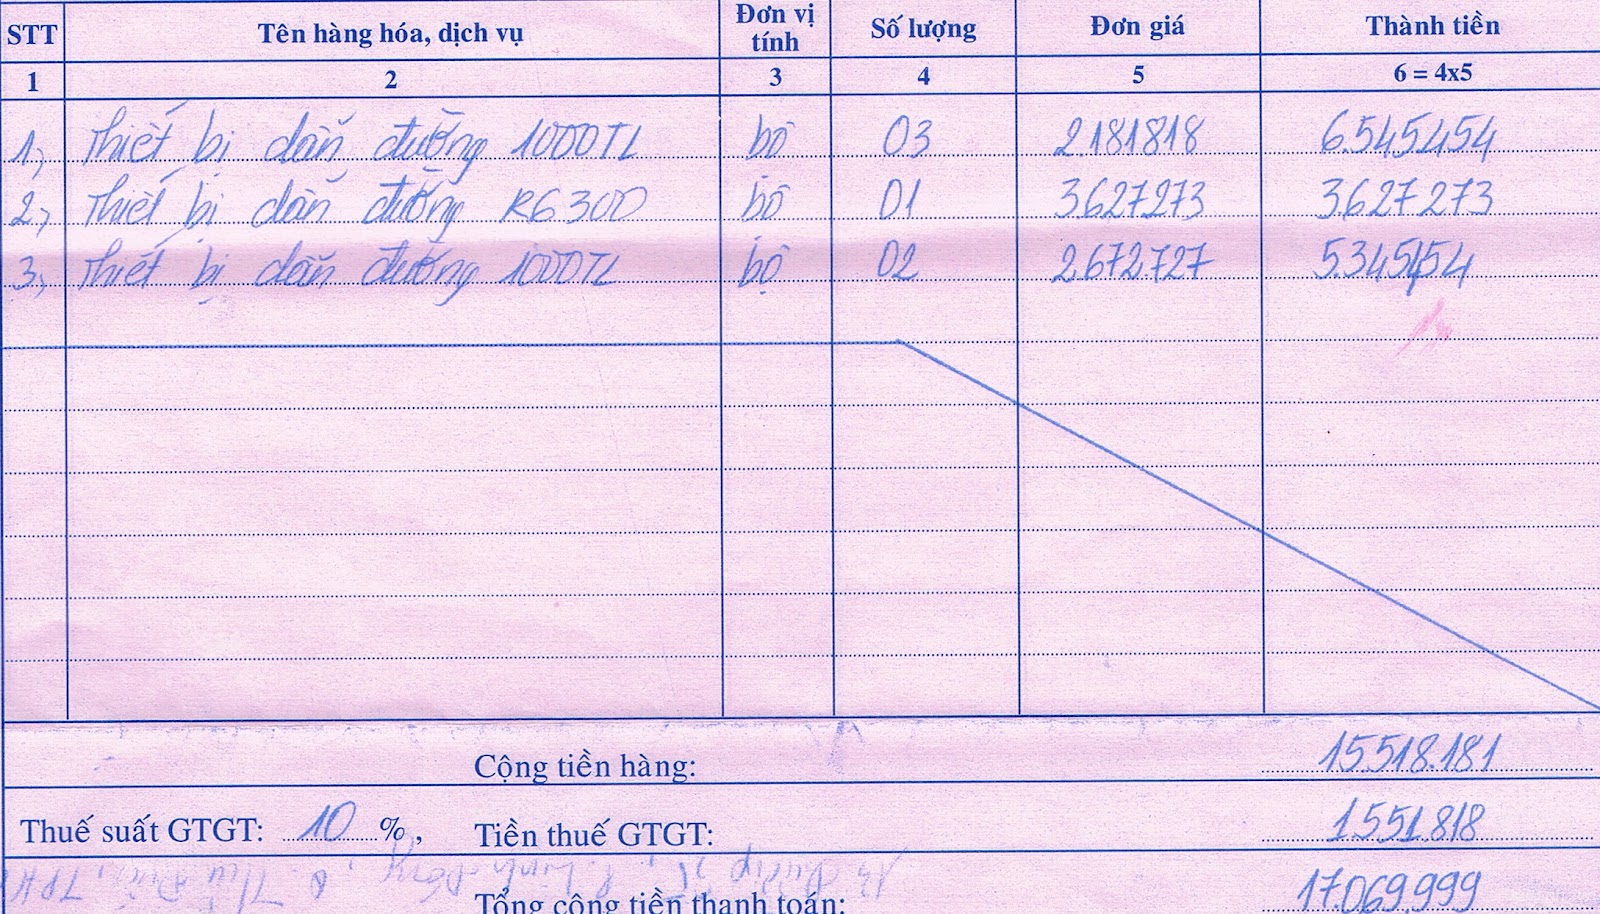 STT Tên hàng hóa, dịch vụ Đơn vị tính Số lượng Đơn giá Thành tiền
1 2 3 4 5 6 = 4x5
1, Thiết bị dẫn đường 1000TL bộ 03 2.181818 6.545.454
2, Thiết bị dẫn đường RG 300 bộ 01 3.627.273 3.627.273
3, Thiết bị dẫn đường 1000TL bộ 02 2.672.727 5.345.454
Cộng tiền hàng: 15.518.181
Thuế suất GTGT: 10 %, Tiền thuế GTGT: 1.551.818
Tổng cộng tiền thanh toán: 17.069.999